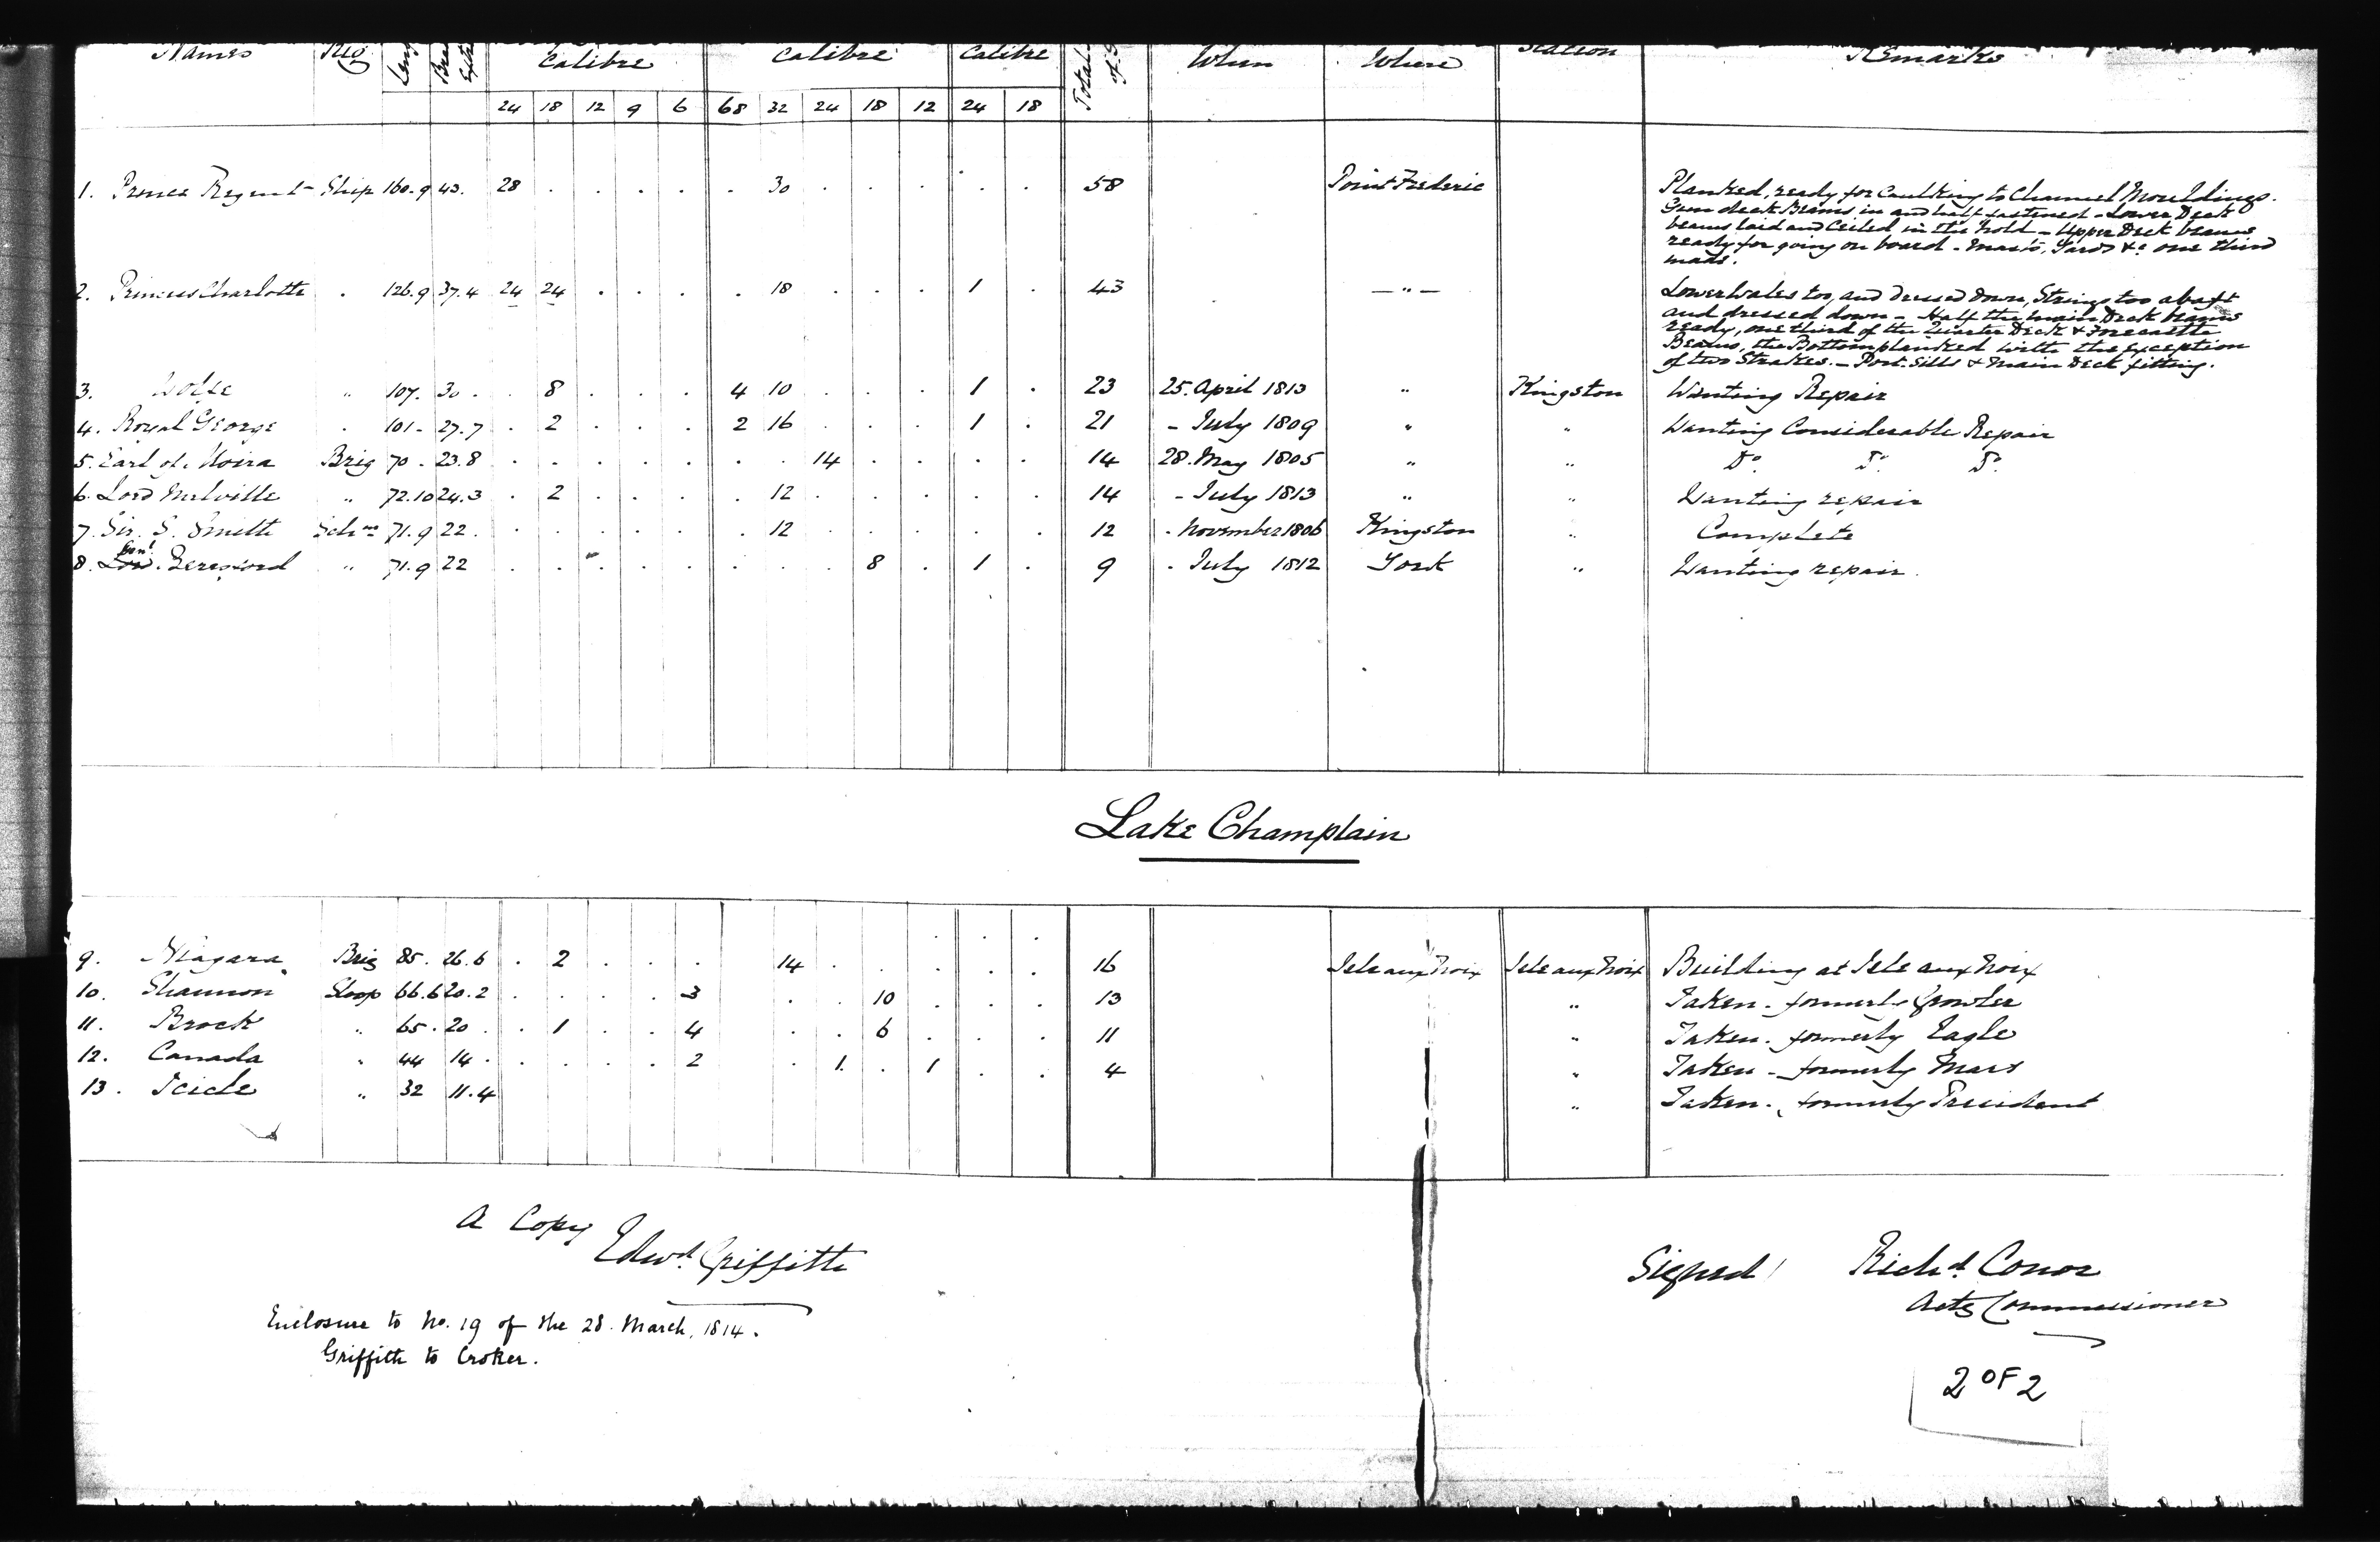 Names Rig Calibre Calibre Calibre Total When Where Station Remarks
24 18 12 9 6 68 32 24 18 12 24 18
1. Prince Regent Ship 160.9 43. 28 . . . . . 30 . . . . . 58 Point Frederic Planked, ready for Caulking to Channel Mouldings.
Gun deck Beams in and half fastened - Lower Deck
beams laid and Ceiled in the hold - Upper Deck beams
ready for going on board - Masts, Yards &c one third
made.
2. Princess Charlotte . 126.9 37.4 24 24 . . . . 18 . . . 1 . 43 — " — Lower Wales too, and dressed down, Strings too abaft
and dressed down - Half the Main Deck beams
ready, one third of the Quarter Deck & Forecastle
Beams, the Bottom planked with the exception
of two Strakes. - Port Sills & Main Deck fitting.
3. Wolfe " 107. 30 . . 8 . . . 4 10 . . . 1 . 23 25. April 1813 " Kingston Wanting Repair
4. Royal George . 101 - 27.7 . 2 . . . 2 16 . . . 1 . 21 - July 1809 " " Wanting Considerable Repair
5. Earl of Moira Brig 70 . 23.8 . . . . . . . 14 . . . . 14 28. May 1805 " " Do. Do. Do.
6. Lord Melville " 72.10 24.3 . 2 . . . . 12 . . . . . 14 - July 1813 " " Wanting repair
7. Sir S. Smith Schnr 71.9 22 . . . . . . . 12 . . . . . 12 . November 1806 Kingston " Complete
Genl
8. Lord Beresford " 71.9 22 . . . . . . . . 8 . 1 . 9 . July 1812 York " Wanting repair.
Lake Champlain
9. Niagara Brig 85. 26.6 . 2 . . . 14 . . . . . 16 Isle aux Noix Isle aux Noix Building at Isle aux Noix
10. Shannon Sloop 66.6 20.2 . . . . 3 . . 10 . . . 13 " Taken - formerly Growler
11. Brock " 65. 20 . . 1 . . 4 . . 6 . . . 11 " Taken - formerly Eagle
12. Canada " 44 14 . . . . . 2 . 1. . 1 . . 4 " Taken - formerly Mars
13. Icicle " 32 11.4 " Taken - formerly President
A Copy
Edwd. Griffith
Signed Richd. Conor
Actg Commissioner
Enclosure to No. 19 of the 28. March, 1814.
Griffith to Croker.
2 OF 2